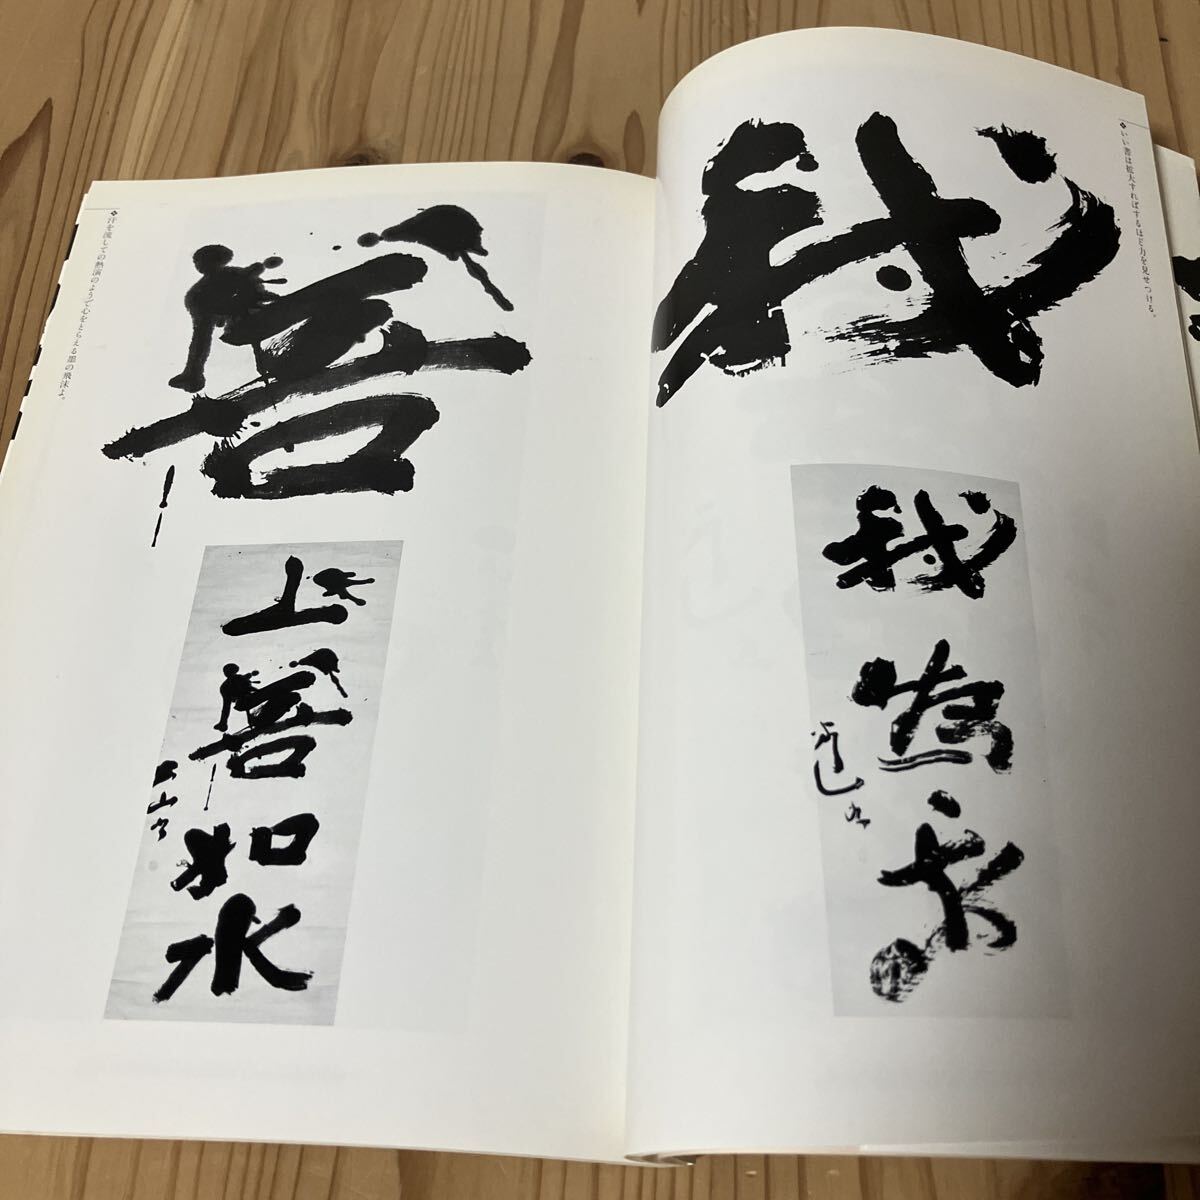 いい書は拡大すればするほど力を見せつける。
我
我
為
汗を流しての熱演のようで心をとらえる墨の飛沫よ。
善
上
善
如
水
山書